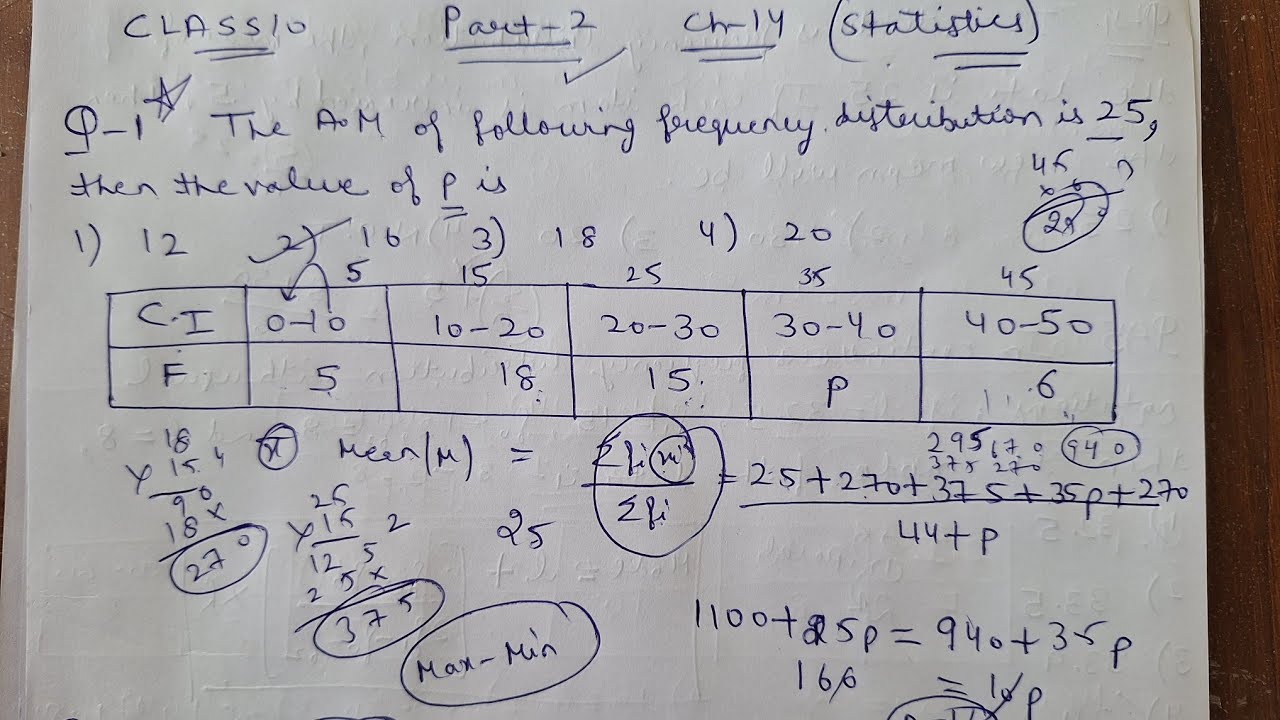 CLASS10 Part-2 Ch-14 (Statistics)
Q-1 The A.M of following frequency distribution is 25,
then the value of P is
45
270
1) 12 2) 16 3) 18 4) 20
5 15 25 35 45
C.I 0-10 10-20 20-30 30-40 40-50
F 5 18 15 P 6
295 670 940
375 270
Mean(M) = Σfixi = 25+270+375+35p+270
Σfi 44+p
25
18
×15
90
18×
270
25
×15
125
25×
375
Max-Min
1100+25p = 940+35p
160 = 10p